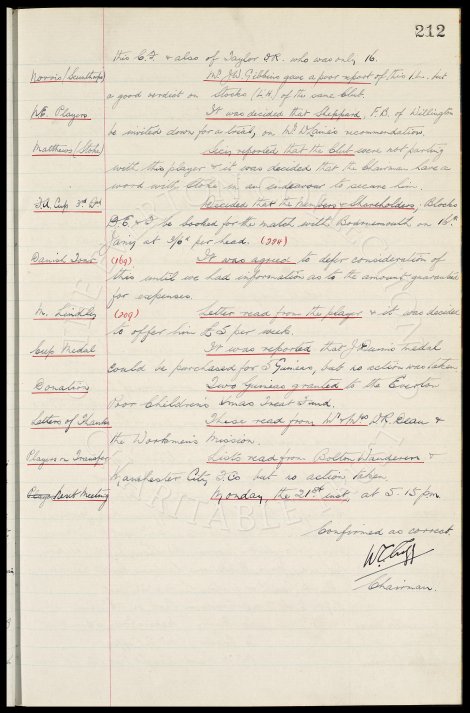 212
this C.F. & also of Taylor I.R. who was only 16.
Norris (Scunthorpe) Mr. J.W. Gibbins gave a poor report of this I.L. but
a good verdict on Stocks (L.H.) of the same Club.
N.E. Players It was decided that Sheppard, F.B. of Willington
be invited down for a trial, on Mr recommendation.
Matthews (Stoke) Secy. reported that the Club were not parting
with this player & it was decided that the Chairman have a
word with Stoke in an endeavour to secure him.
F.A. Cup 3rd Rd Decided that the Members & Shareholders, Blocks
D.E. & F be booked for the match with Bournemouth on 16th
Jany at 3/6d per head. (224)
Danish Tour (169) It was agreed to defer consideration of
this until we had information as to the amount guaranteed
for expenses.
M. Lindley (209) Letter read from the player & it was decided
to offer him £5 per week.
Cup Medal It was reported that J. Medal
could be purchased for 5 Guineas, but no action was taken
Donation Two Guineas granted to the Everton
Poor Children's Xmas Treat Fund.
Letters of Thanks These read from Mr & Mrs W.R. Dean &
the Workmen's Mission.
Players on Transfer Lists read from Bolton Wanderers &
Manchester City F.Co but no action taken
Next Meeting Monday, the 21st inst at 5.15 pm.
Confirmed as correct.
W.C. Cuff
Chairman.